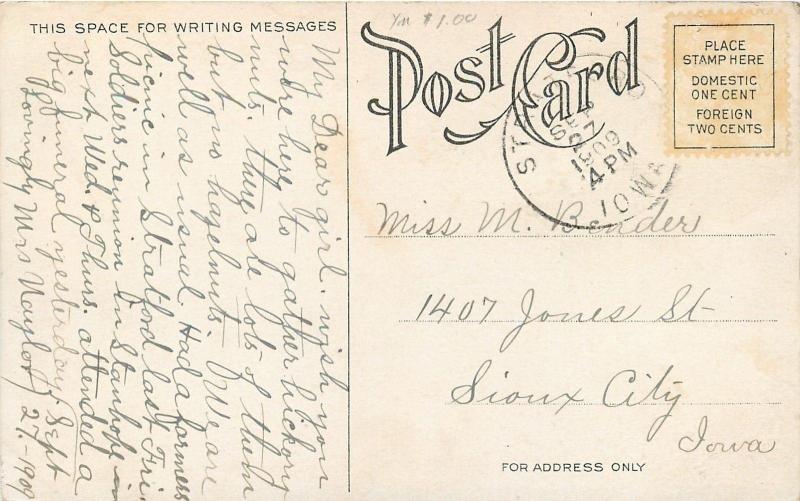 THIS SPACE FOR WRITING MESSAGES
My Dear girl. wish you
were here to gather hickory
nuts. they are lots of them
but no hazelnuts. We are
well as usual Had a farmers
picnic in Stratford last Fri.
Soldiers reunion in Stanhope in
next Wed. & Thurs. attended a
big funeral yesterday. Sept
Lovingly Mrs Naylor 27.-1909
$1.00
Post Card
PLACE
STAMP HERE
DOMESTIC
ONE CENT
FOREIGN
TWO CENTS
1909
4 PM
IOWA
Miss M. Bender
1407 Jones St
Sioux City
Iowa
FOR ADDRESS ONLY